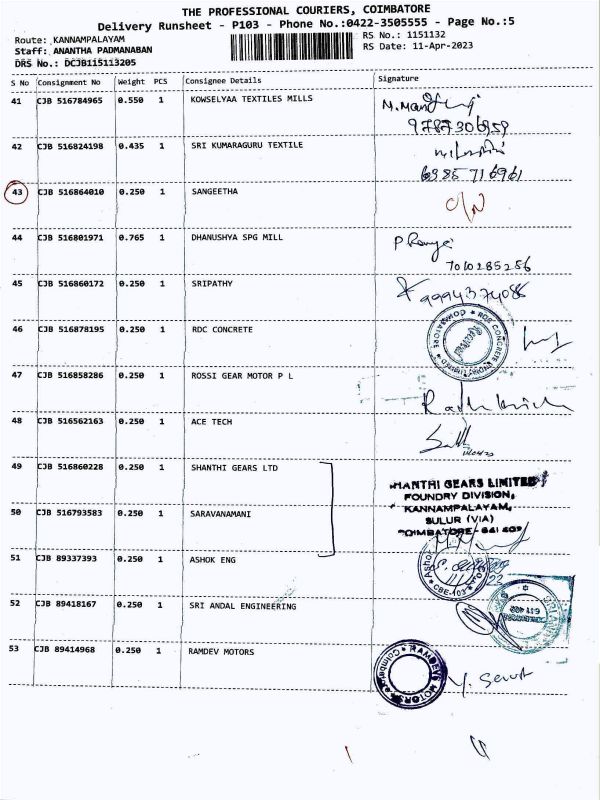 THE PROFESSIONAL COURIERS, COIMBATORE
Delivery Runsheet - P103 - Phone No.:0422-3505555 - Page No.:5
Route: KANNAMPALAYAM
RS No.: 1151132
Staff: ANANTHA PADMANABAN
RS Date: 11-Apr-2023
DRS No.: DCJB115113205
S No Consignment No Weight PCS Consignee Details Signature
41 CJB 516784965 0.550 1 KOWSELYAA TEXTILES MILLS
9787306959
42 CJB 516824198 0.435 1 SRI KUMARAGURU TEXTILE
6385716961
43 CJB 516864010 0.250 1 SANGEETHA
44 CJB 516801971 0.765 1 DHANUSHYA SPG MILL
7010285256
45 CJB 516860172 0.250 1 SRIPATHY
9994374086
46 CJB 516878195 0.250 1 RDC CONCRETE
RDC CONCRETE (INDIA) LIMITED COIMBATORE
47 CJB 516858286 0.250 1 ROSSI GEAR MOTOR P L
48 CJB 516562163 0.250 1 ACE TECH
49 CJB 516860228 0.250 1 SHANTHI GEARS LTD
SHANTHI GEARS LIMITED
FOUNDRY DIVISION,
KANNAMPALAYAM,
50 CJB 516793583 0.250 1 SARAVANAMANI
SULUR (VIA)
COIMBATORE - 641 402
51 CJB 89337393 0.250 1 ASHOK ENG
CBE-103
52 CJB 89418167 0.250 1 SRI ANDAL ENGINEERING
53 CJB 89414968 0.250 1 RAMDEV MOTORS
RAMDEV MOTORS